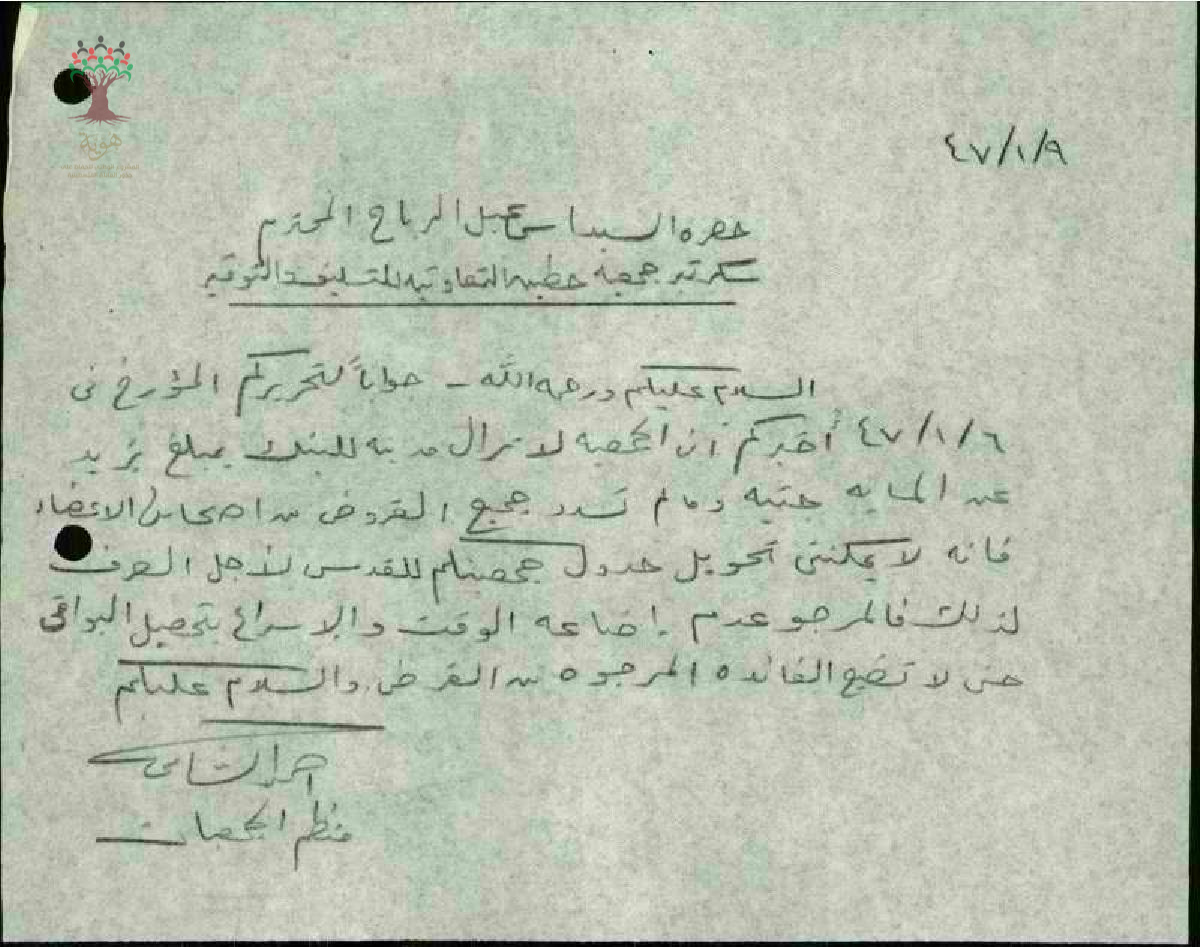 هوية
٤٧/١/٩
حضره السيد اسماعيل الرباح المحترم
سكرتير جمعيه حطين التعاونيه للتسليف والتوفير
السلام عليكم ورحمه الله - جواباً لتحريركم المؤرخ في
٤٧/١/٦ أخبركم أن الجمعيه لا تزال مدينه للبنك بمبلغ يزيد
عن المايه جنيه وما لم تسدد جميع القروض من اصحاب الاعضاء
فانه لا يمكنني تحويل جدول جمعيتكم للقدس لأجل الصرف
لذلك فالمرجو عدم إضاعه الوقت والإسراع بتحصيل البواقي
حتى لا تضيع الفائده المرجوه من القرض والسلام عليكم
احمد
منظم الجمعيات